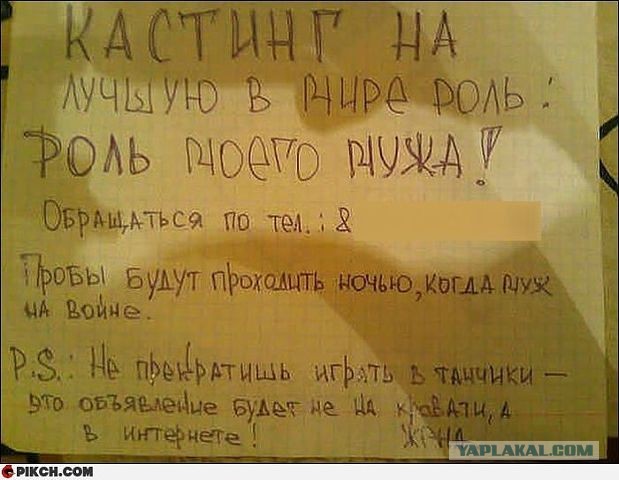 КАСТИНГ НА
ЛУЧШУЮ В МИРЕ РОЛЬ :
РОЛЬ МОЕГО МУЖА !
ОБРАЩАТЬСЯ ПО ТЕЛ. : 8
ПРОБЫ БУДУТ ПРОХОДИТЬ НОЧЬЮ, КОГДА МУЖ
НА ВОЙНЕ.
P.S. : НЕ ПРЕКРАТИШЬ ИГРАТЬ В ТАНЧИКИ —
ЭТО ОБЪЯВЛЕНИЕ БУДЕТ НЕ НА КРОВАТИ, А
В ИНТЕРНЕТЕ ! ЖЕНА
YAPLAKAL.COM
PIKCH.COM